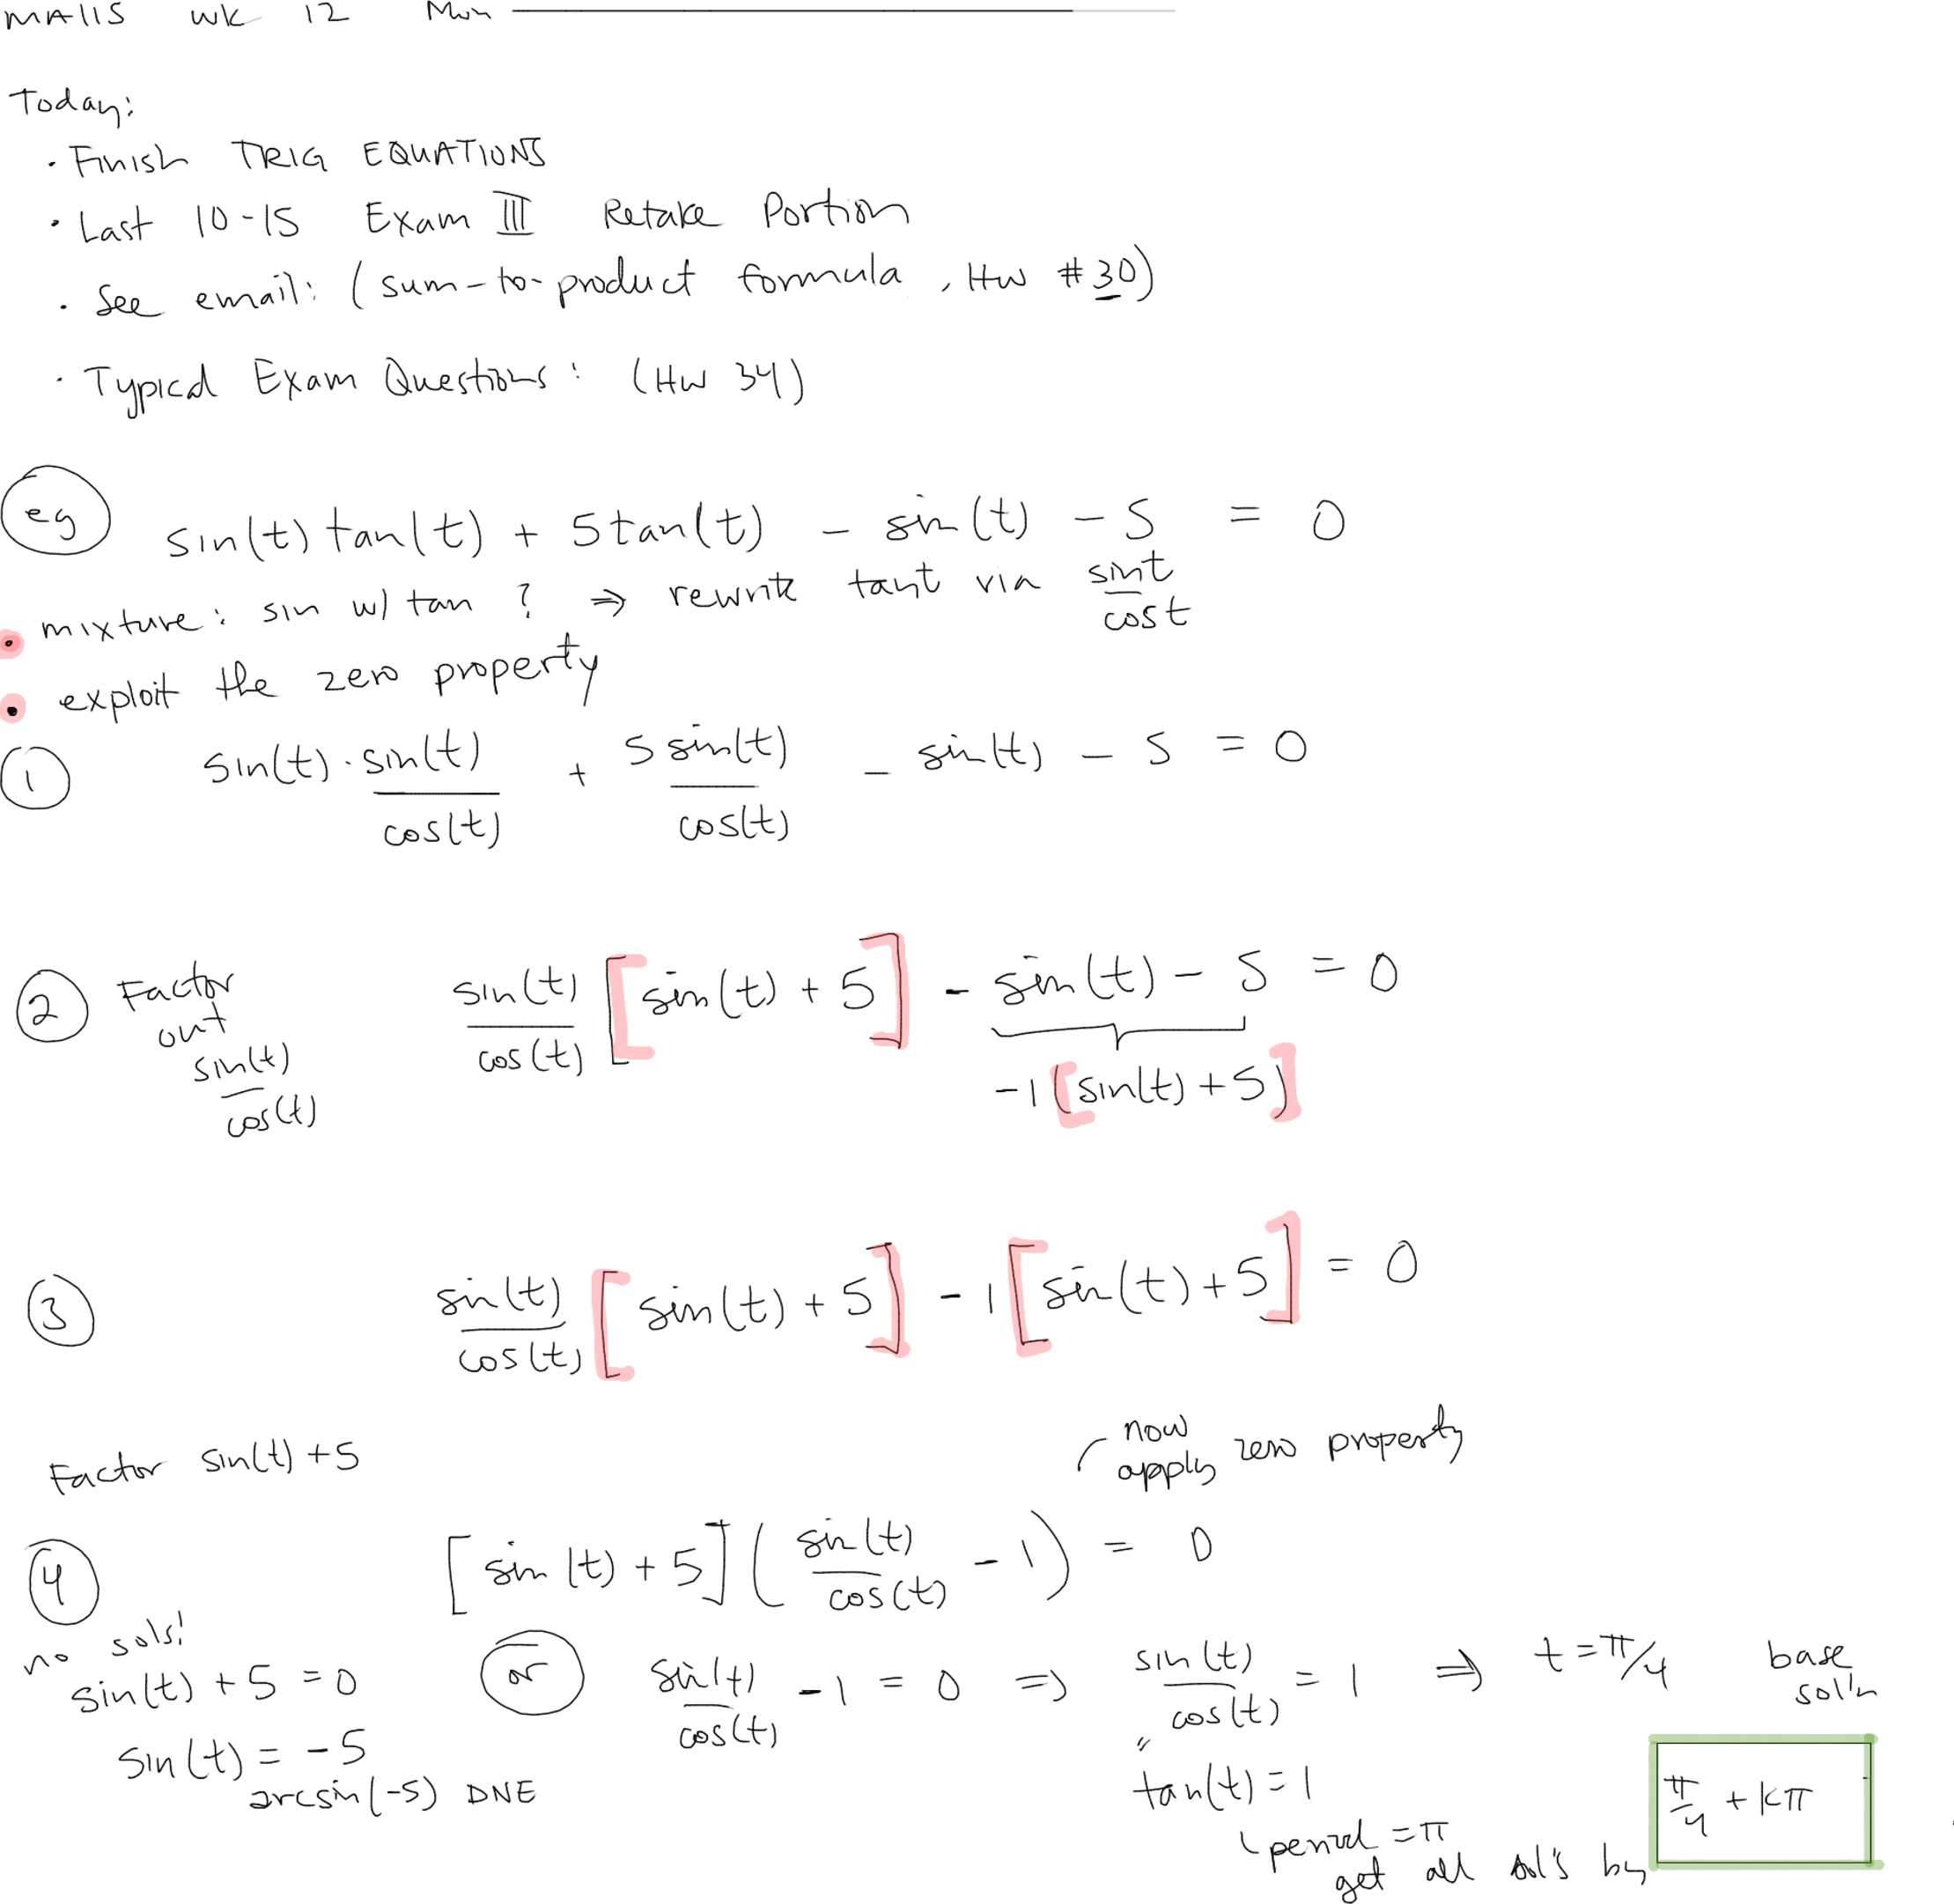 MA115 wk 12 Mon
Today:
· Finish TRIG EQUATIONS
· Last 10-15 Exam III Retake Portion
· See email: (sum-to-product formula, HW #30)
· Typical Exam Questions: (HW 34)
eg sin(t) tan(t) + 5 tan(t) - sin(t) - 5 = 0
• mixture: sin w/ tan ? ⇒ rewrite tan t via sin t / cos t
• exploit the zero property
① sin(t) · sin(t)/cos(t) + 5 sin(t)/cos(t) - sin(t) - 5 = 0
② Factor out sin(t)/cos(t) sin(t)/cos(t) [sin(t) + 5] - sin(t) - 5 = 0
-1 [sin(t) + 5]
③ sin(t)/cos(t) [sin(t) + 5] - 1 [sin(t) + 5] = 0
Factor sin(t) + 5
now apply zero property
④ [sin(t) + 5] (sin(t)/cos(t) - 1) = 0
no sols!
sin(t) + 5 = 0 or sin(t)/cos(t) - 1 = 0 ⇒ sin(t)/cos(t) = 1 ⇒ t = π/4 base sol'n
sin(t) = -5
arcsin(-5) DNE
" tan(t) = 1
period = π
get all sol's by π/4 + kπ